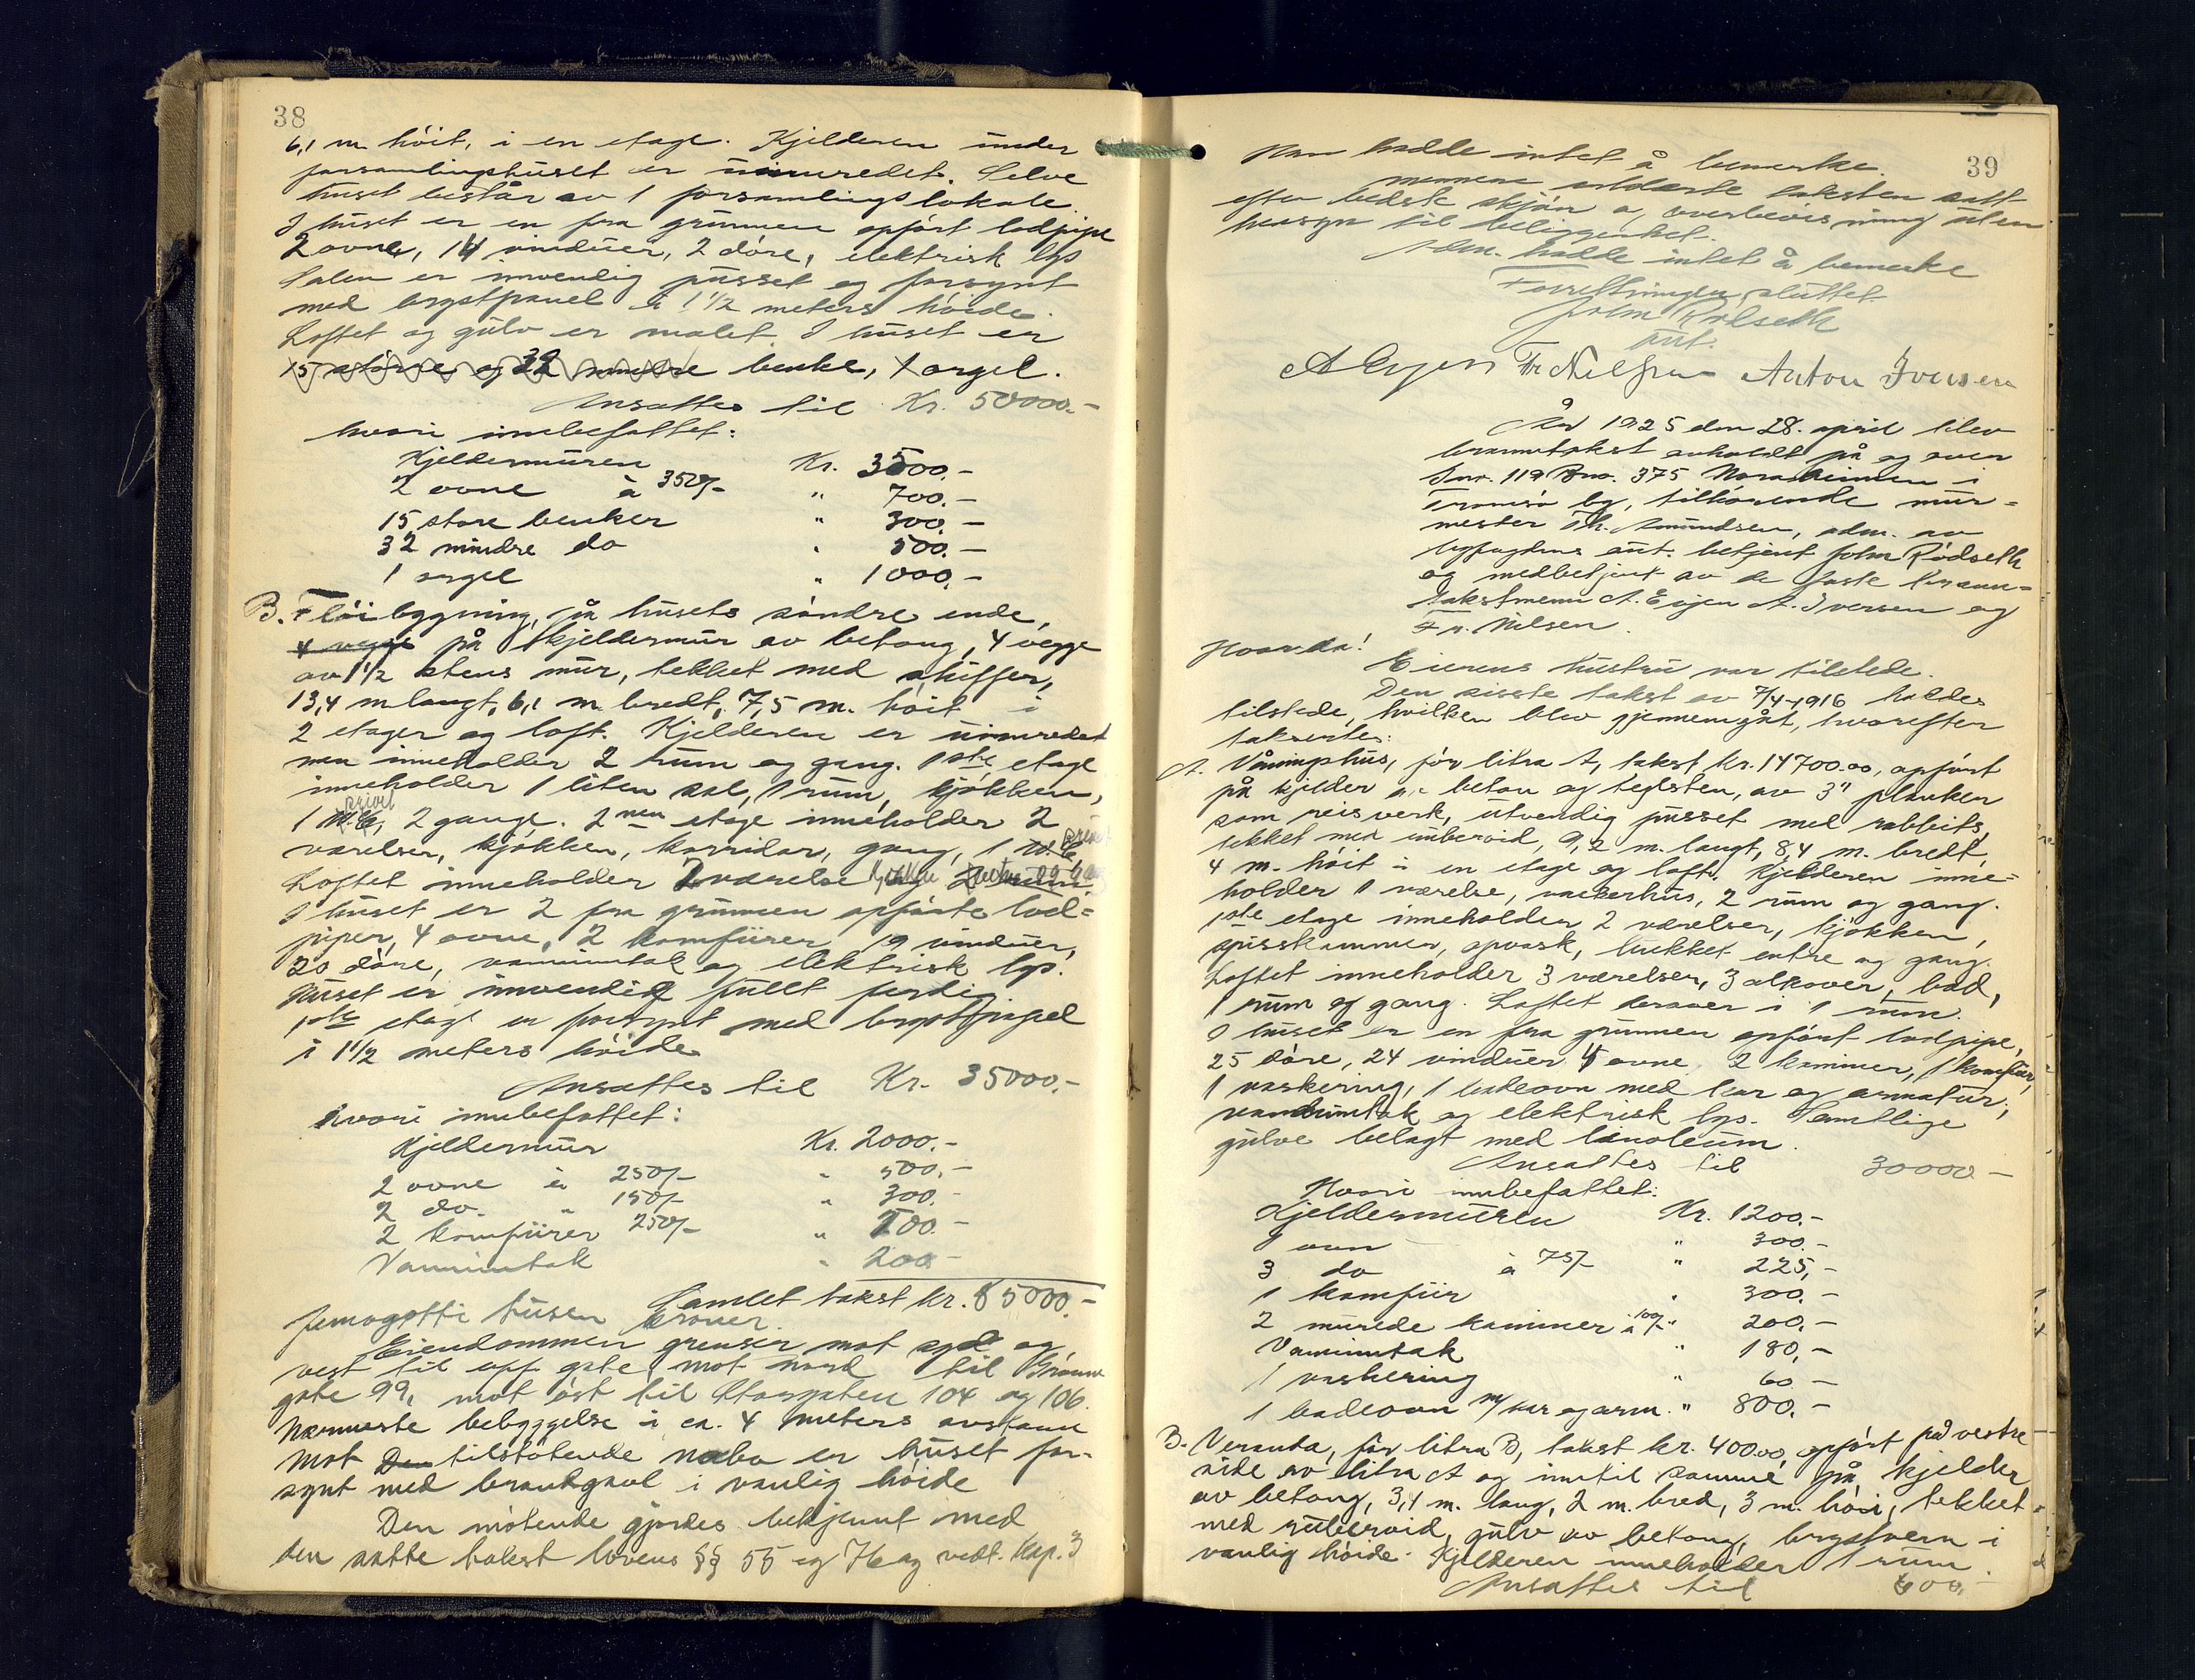 38
6,1 m høit, i en etage. Kjelderen under
forsamlingshuset er uinnredet. Selve
huset består av 1 forsamlingslokale.
I huset er en fra grunnen opført lodpipe
2 ovne, 14 vinduer, 2 døre, elektrisk lys
Salen er innvendig pusset og forsynt
med brystpanel i 1 1/2 meters høide.
Loftet og gulv er malet. I huset er
15 større og 32 mindre benke, 1 orgel.
Ansattes til Kr. 50000.-
hvori innbefattet:
Kjeldermuren Kr. 3500.-
2 ovne à 350/- " 700.-
15 store benker " 300.-
32 mindre do " 500.-
1 orgel " 1000.-
B. Fløibygning, på husets søndre ende,
4 vegge på kjeldermur av betong, 4 vegge
av 1 1/2 stens mur, tekket med skiffer,
13,4 m langt, 6,1 m. bredt, 7,5 m. høit i
2 etager og loft. Kjelderen er uinnredet
men inneholder 2 rum og gang. 1ste etage
inneholder 1 liten sal, 1 rum, kjøkken,
1 W.C, privet 2 gange. 2nen etage inneholder 2
værelser, kjøkken, korridor, gang, 1 W.C privet
Loftet inneholder 2 værelse kjøkken og
I huset er 2 fra grunnen opførte lod=
piper, 4 ovne, 2 komfürer, 19 vinduer,
20 døre, vanninntak og elektrisk lys.
Huset er innvendig fullt ferdig.
1ste etage er forsynt med brystpapel
i 1 1/2 meters høide
Ansattes til Kr. 35000.-
hvori innbefattet:
Kjeldermur Kr. 2000.-
2 ovne à 250/- " 500.-
2 do. " 150/- " 300.-
2 komfürer 250/- " 500.-
Vanninntak " 200.-
Samlet takst kr. 85000.-
femogotti tusen kroner.
Eiendommen grenser mot syd og
vest til opp. gate, mot nord til Grønne
gate 99, mot øst til Storgaten 104 og 106.
Nærmeste bebyggelse i ca. 4 meters avstann
Mot Den tilstøtende nabo er huset for-
synt med brandgavl i vanlig høide
Den møtende gjordes bekjennt med
den satte takst lovens §§ 55 og 76 og vedt. kap. 3
39
Han hadde intet å bemerke.
Mennene erklærte taksten satt
efter bedste skjøn og overbevisning uten
hensyn til beliggenhet.
Adm. hadde intet å bemerke
Forretningen sluttet
John Rødseth
aut.
A Evjen Fr Nilsen Anton Iversen
År 1925 den 28. april blev
branntakst avholdt på og over
Gnr. 119 Bnr. 375 Noraheimen i
Tromsø by, tilhørende mur=
mester Th. Amundsen, adm. av
byfogdens aut. betjent John Rødseth
og medbetjent av de faste brann=
takstmenn A. Evjen A. Iversen og
Fr. Nilsen.
Hvorda!
Eierens hustru var tilstede.
Den sisste takst av 7/4-1916 haldes
tilstede, hvilken blev gjennemgåt, hvorefter
taksertes:
A. Våningshus, før litra A, takst kr. 14700.00, opført
på kjelder av beton og teglsten, av 3" planker
som reisverk, utvendig pusset med rabbits,
tekket med ruberoid, 9,2 m. langt, 8,4 m. bredt,
4 m. høit i en etage og loft. Kjelderen inne=
holder 1 værelse, vaskerhus, 2 rum og gang.
1ste etage inneholder 2 værelser, kjøkken,
spisskammer, opvask, lukket entre og gang.
Loftet inneholder 3 værelser, 3 alkover, bad,
1 rum og gang. Loftet derover i 1 rum.
I huset er en fra grunnen opført lodpipe,
25 døre, 24 vinduer 4 ovne, 2 kaminer, 1 komfür,
1 vaskering, 1 badeovn med kar og armatur,
vanninntak og elektrisk lys. Samtlige
gulve belagt med linoleum.
Ansattes til 30000.-
Hvori innbefattet:
Kjeldermuren Kr. 1200.-
1 ovn " 300.-
3 do à 75/- " 225,-
1 komfür " 300.-
2 murede kaminer à 100/- " 200.-
Vanninntak " 180,-
1 vaskering " 60 -
1 badeovn m/ kar og arm. " 800.-
B. Veranda, før litra B, takst kr. 400.00, opført på vestre
side av litra A og inntil samme på kjelder
av betong, 3,1 m. lang, 2 m. bred, 3 m. høi, tekket
med ruberoid, gulv av betong, brystvern i
vanlig høide. Kjelderen inneholder 1 rum.
Ansattes til 600.-